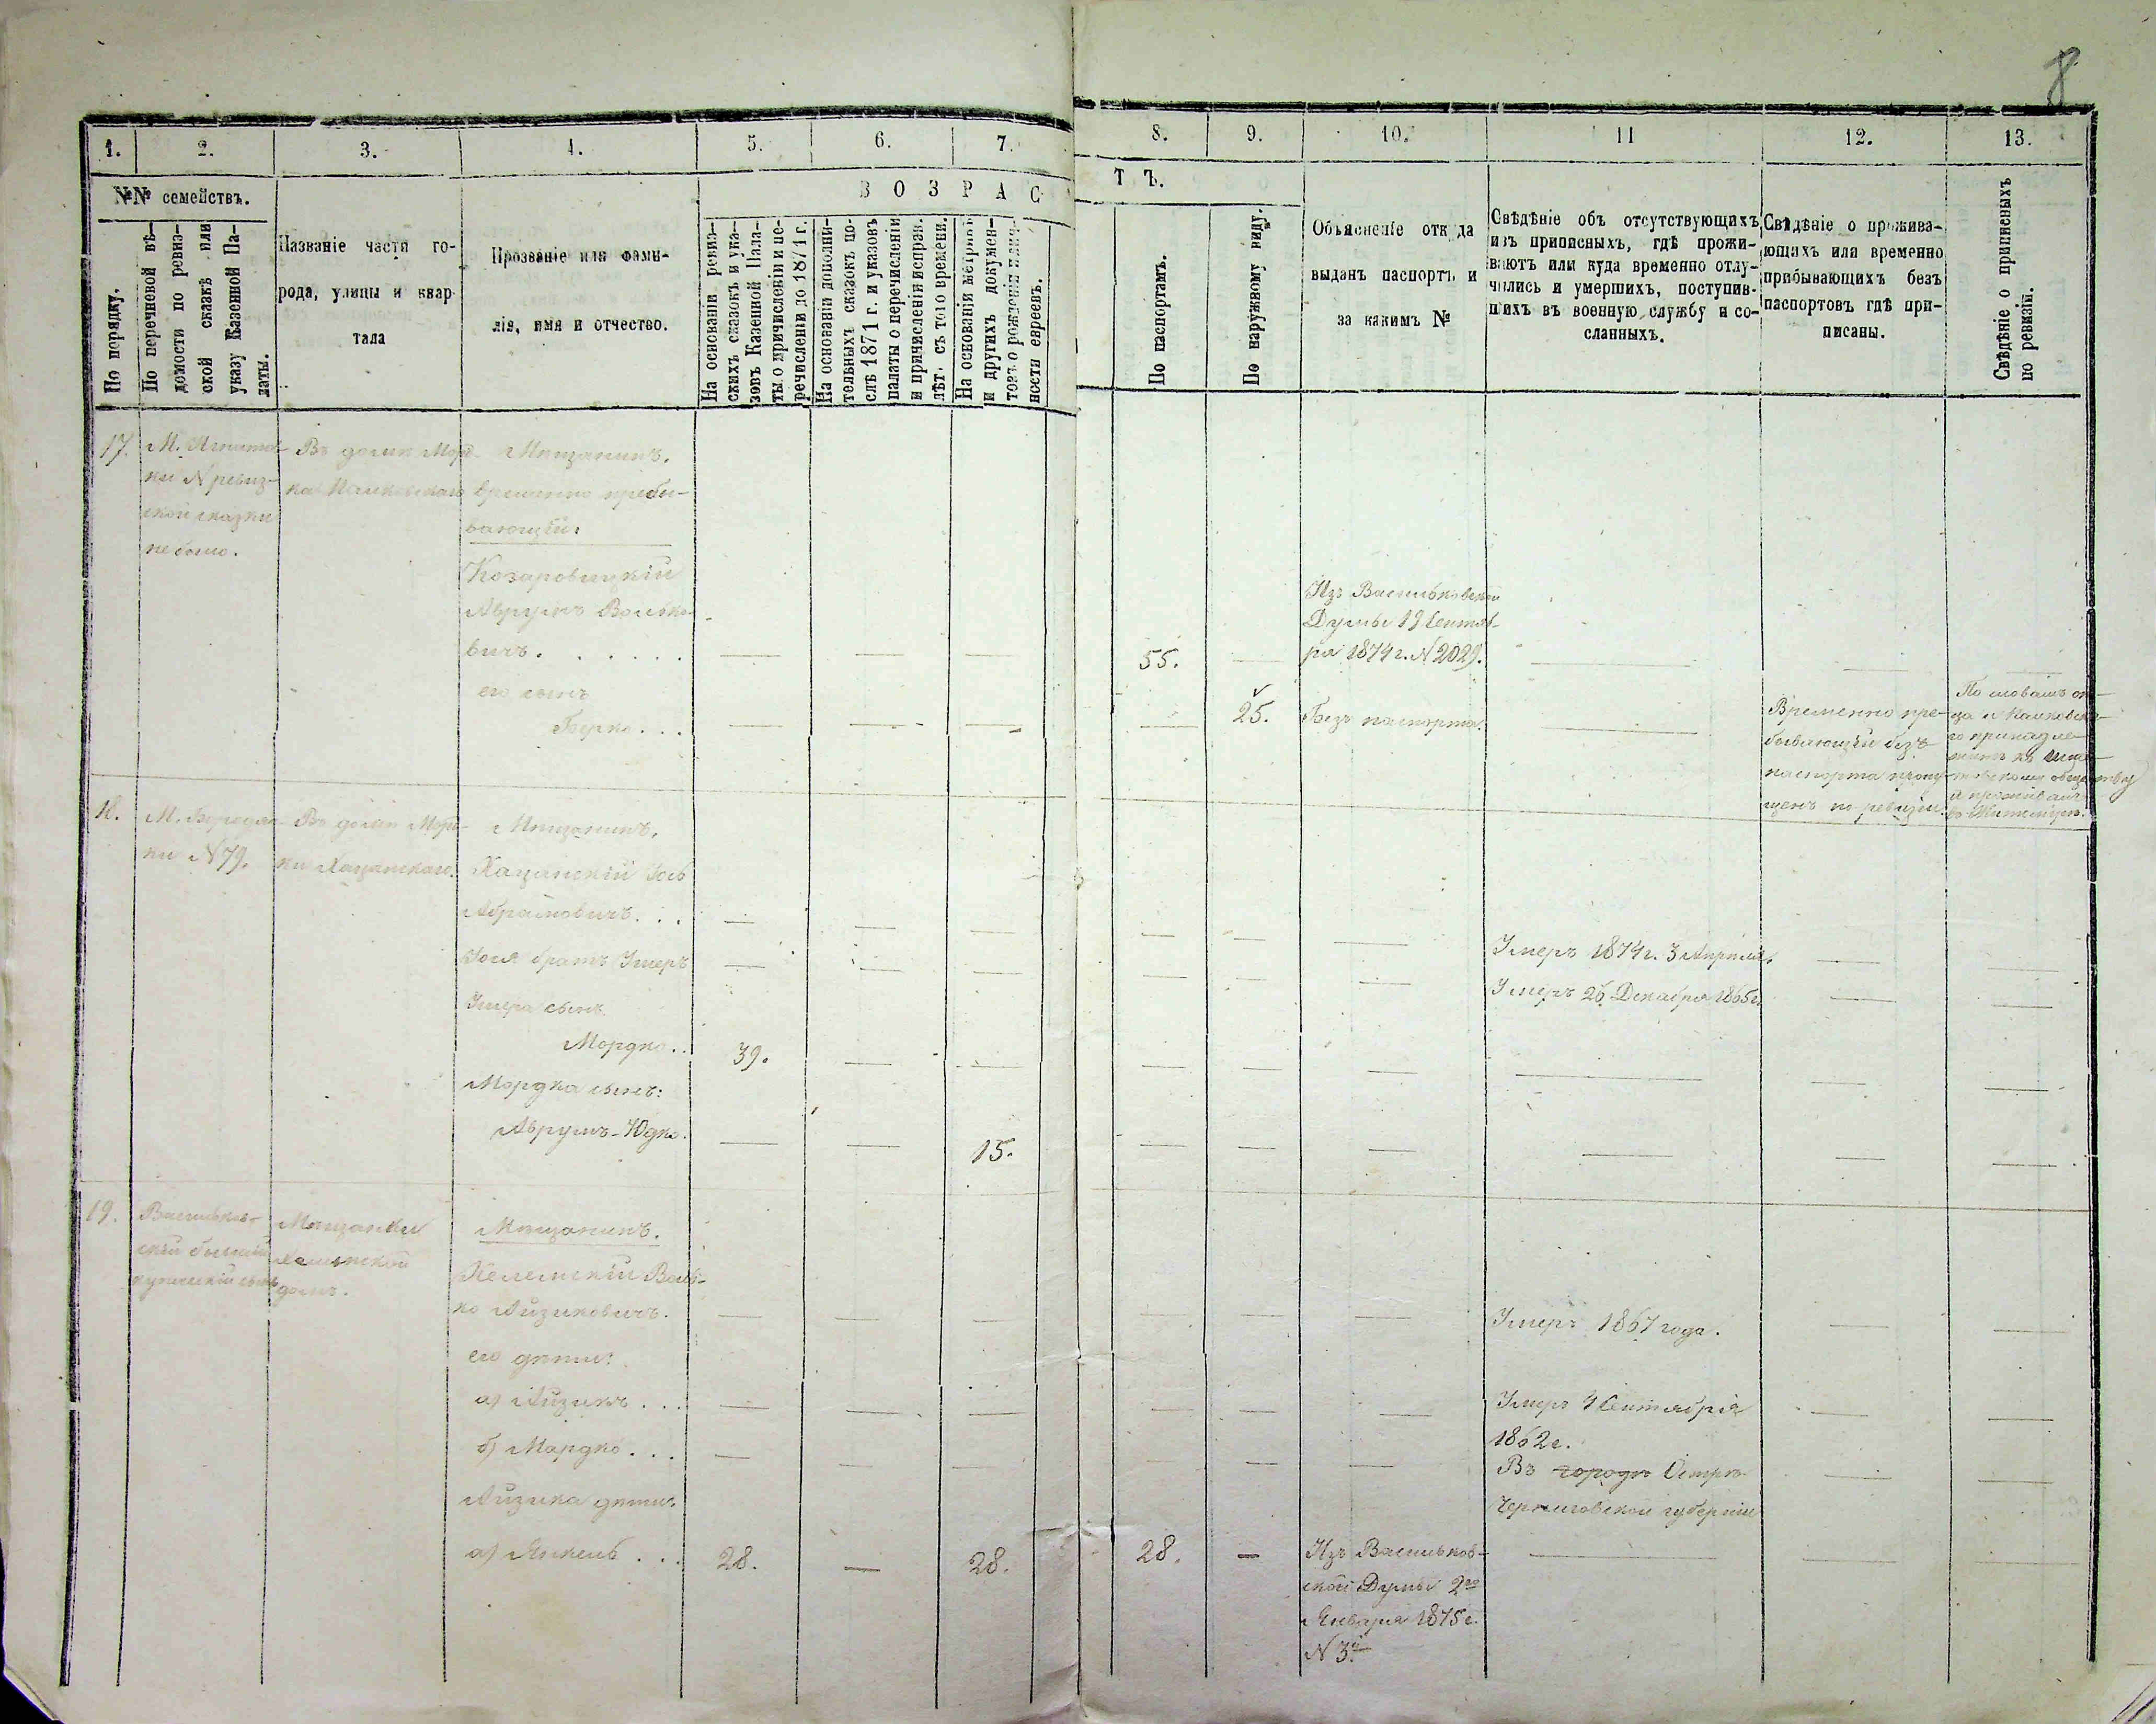 8
1. 2. 3. 4. 5. 6. 7. 8. 9. 10. 11 12. 13.
№№ семействъ.
По порядку.
По перечневой вѣ-
домости по ревиз-
ской сказкѣ или
указу Казенной Па-
латы.
Названіе части го-
рода, улицы и квар-
тала
Прозваніе или фами-
лія, имя и отчество.
В О З Р А С Т Ъ.
На основаніи ревиз-
скихъ сказокъ и ука-
зовъ Казенной Пала-
ты о причисленіи и пе-
речисленіи до 1871 г.
На основаніи дополни-
тельныхъ сказокъ по-
слѣ 1871 г. и указовъ
палаты о перечисленіи
и причисленіи исправ.
лѣт. съ того времени.
На основаніи метрикъ
и другихъ докумен-
товъ о рожденіи
ности евреевъ.
По паспортамъ.
По наружному виду.
Объясненіе откуда
выданъ паспортъ и
за какимъ №
Свѣдѣніе объ отсутствующихъ
изъ приписныхъ, гдѣ прожи-
ваютъ или куда временно отлу-
чились и умершихъ, поступив-
шихъ въ военную службу и со-
сланныхъ.
Свѣдѣніе о прожива-
ющихъ или временно
прибывающихъ безъ
паспортовъ гдѣ при-
писаны.
Свѣдѣніе о приписныхъ
по ревизіи.
17.
М.
ки N ревиз-
ской сказки
не было.
Въ домѣ Морд-
ка
Мѣщанинъ.
временно пребы-
вающій:
Козаровицкій
Аврумъ Волько-
вичъ. . . . . .
55.
Изъ Васильковской
Думы 19 Сентяб-
ря 1874 г. N 2029.
его сынъ
Берко . . .
25.
Безъ паспорта.
Временно пре-
бывающій безъ
паспорта
щенъ по ревизіи.
По словамъ от-
ца
го принадле-
житъ къ
обществу
и проживаетъ
18.
М. Бородян-
ки N 79.
Въ домѣ Мор-
ки Хацанскаго.
Мѣщанинъ.
Хацанскій Іось
Абрамовичъ. . .
Умеръ 1874 г. 3 Апрѣля.
Іося братъ Умеръ
Умеръ 26 Декабря 1865 г.
Умера сынъ
Мордко . .
39.
Мордка сынъ:
Аврумъ-Юдко.
15.
19.
Васильков-
скій бывшій
купеческій сынъ
Мѣщанки
домъ.
Мѣщанинъ.
Вель-
ко Айзиковичъ.
Умеръ 1867 года.
его дѣти:
а) Айзикъ . . .
Умеръ 4 Сентября
1862 г.
б) Мордко . . .
Въ городѣ Острѣ
Черниговской губерніи
Айзика дѣти:
а) Янкель . . .
28.
28.
28.
Изъ Васильков-
ской Думы 2го
Января 1875 г.
N 3й